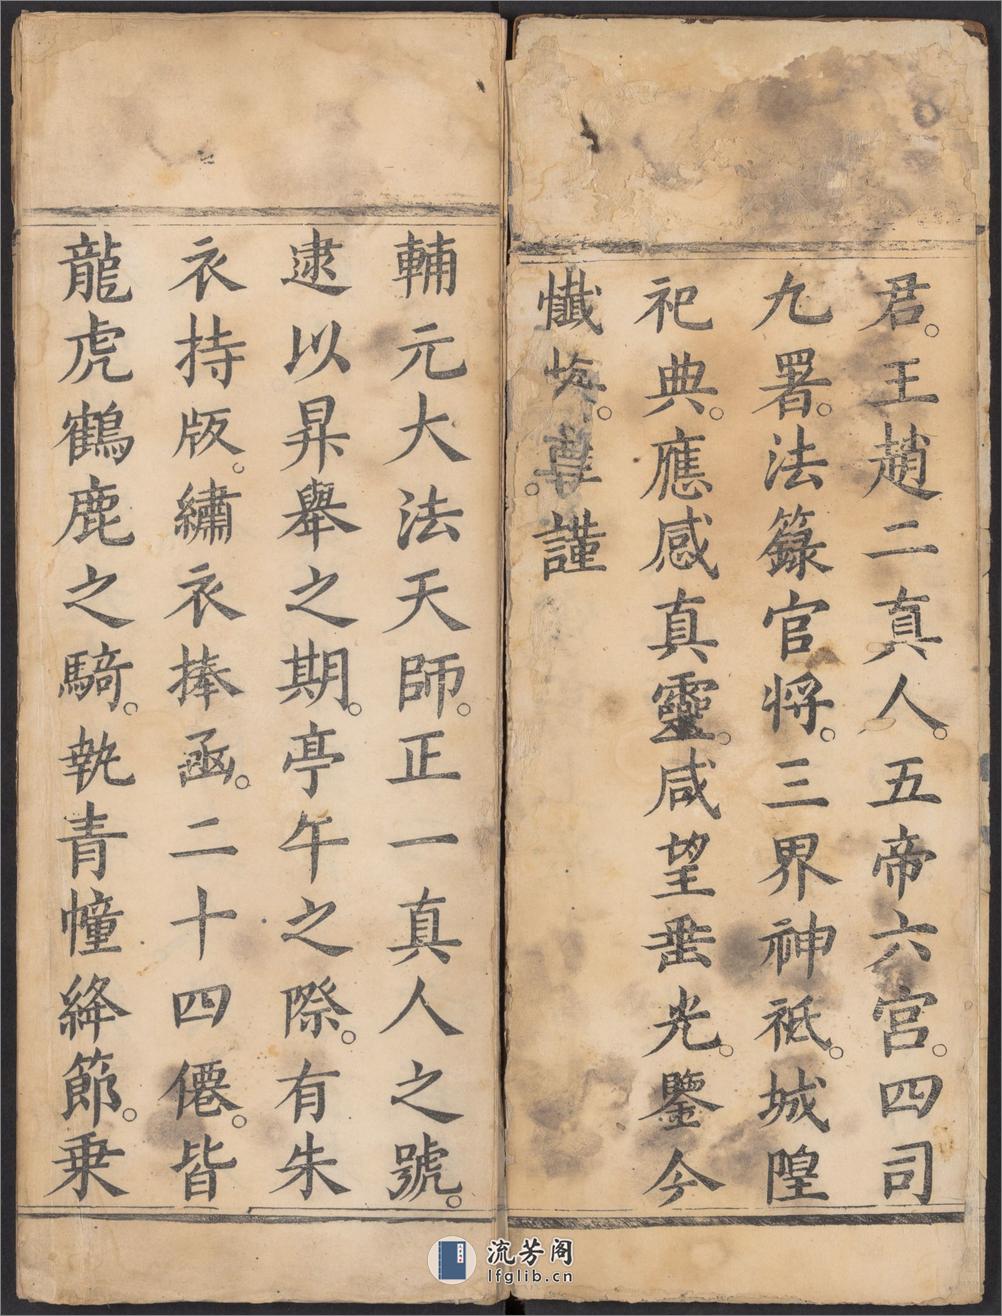 君。王趙二真人。五帝六宮。四司
九署。法籙官將。三界神祇。城隍
祀典。應感真靈。咸望垂光。鑒今
懺悔。尊。謹
輔元大法天師。正一真人之號。
逮以昇舉之期。亭午之際。有朱
衣持版。繡衣捧函。二十四僊。皆
龍虎鶴鹿之騎。執青幢絳節。乗
流芳阁
lfglib.cn